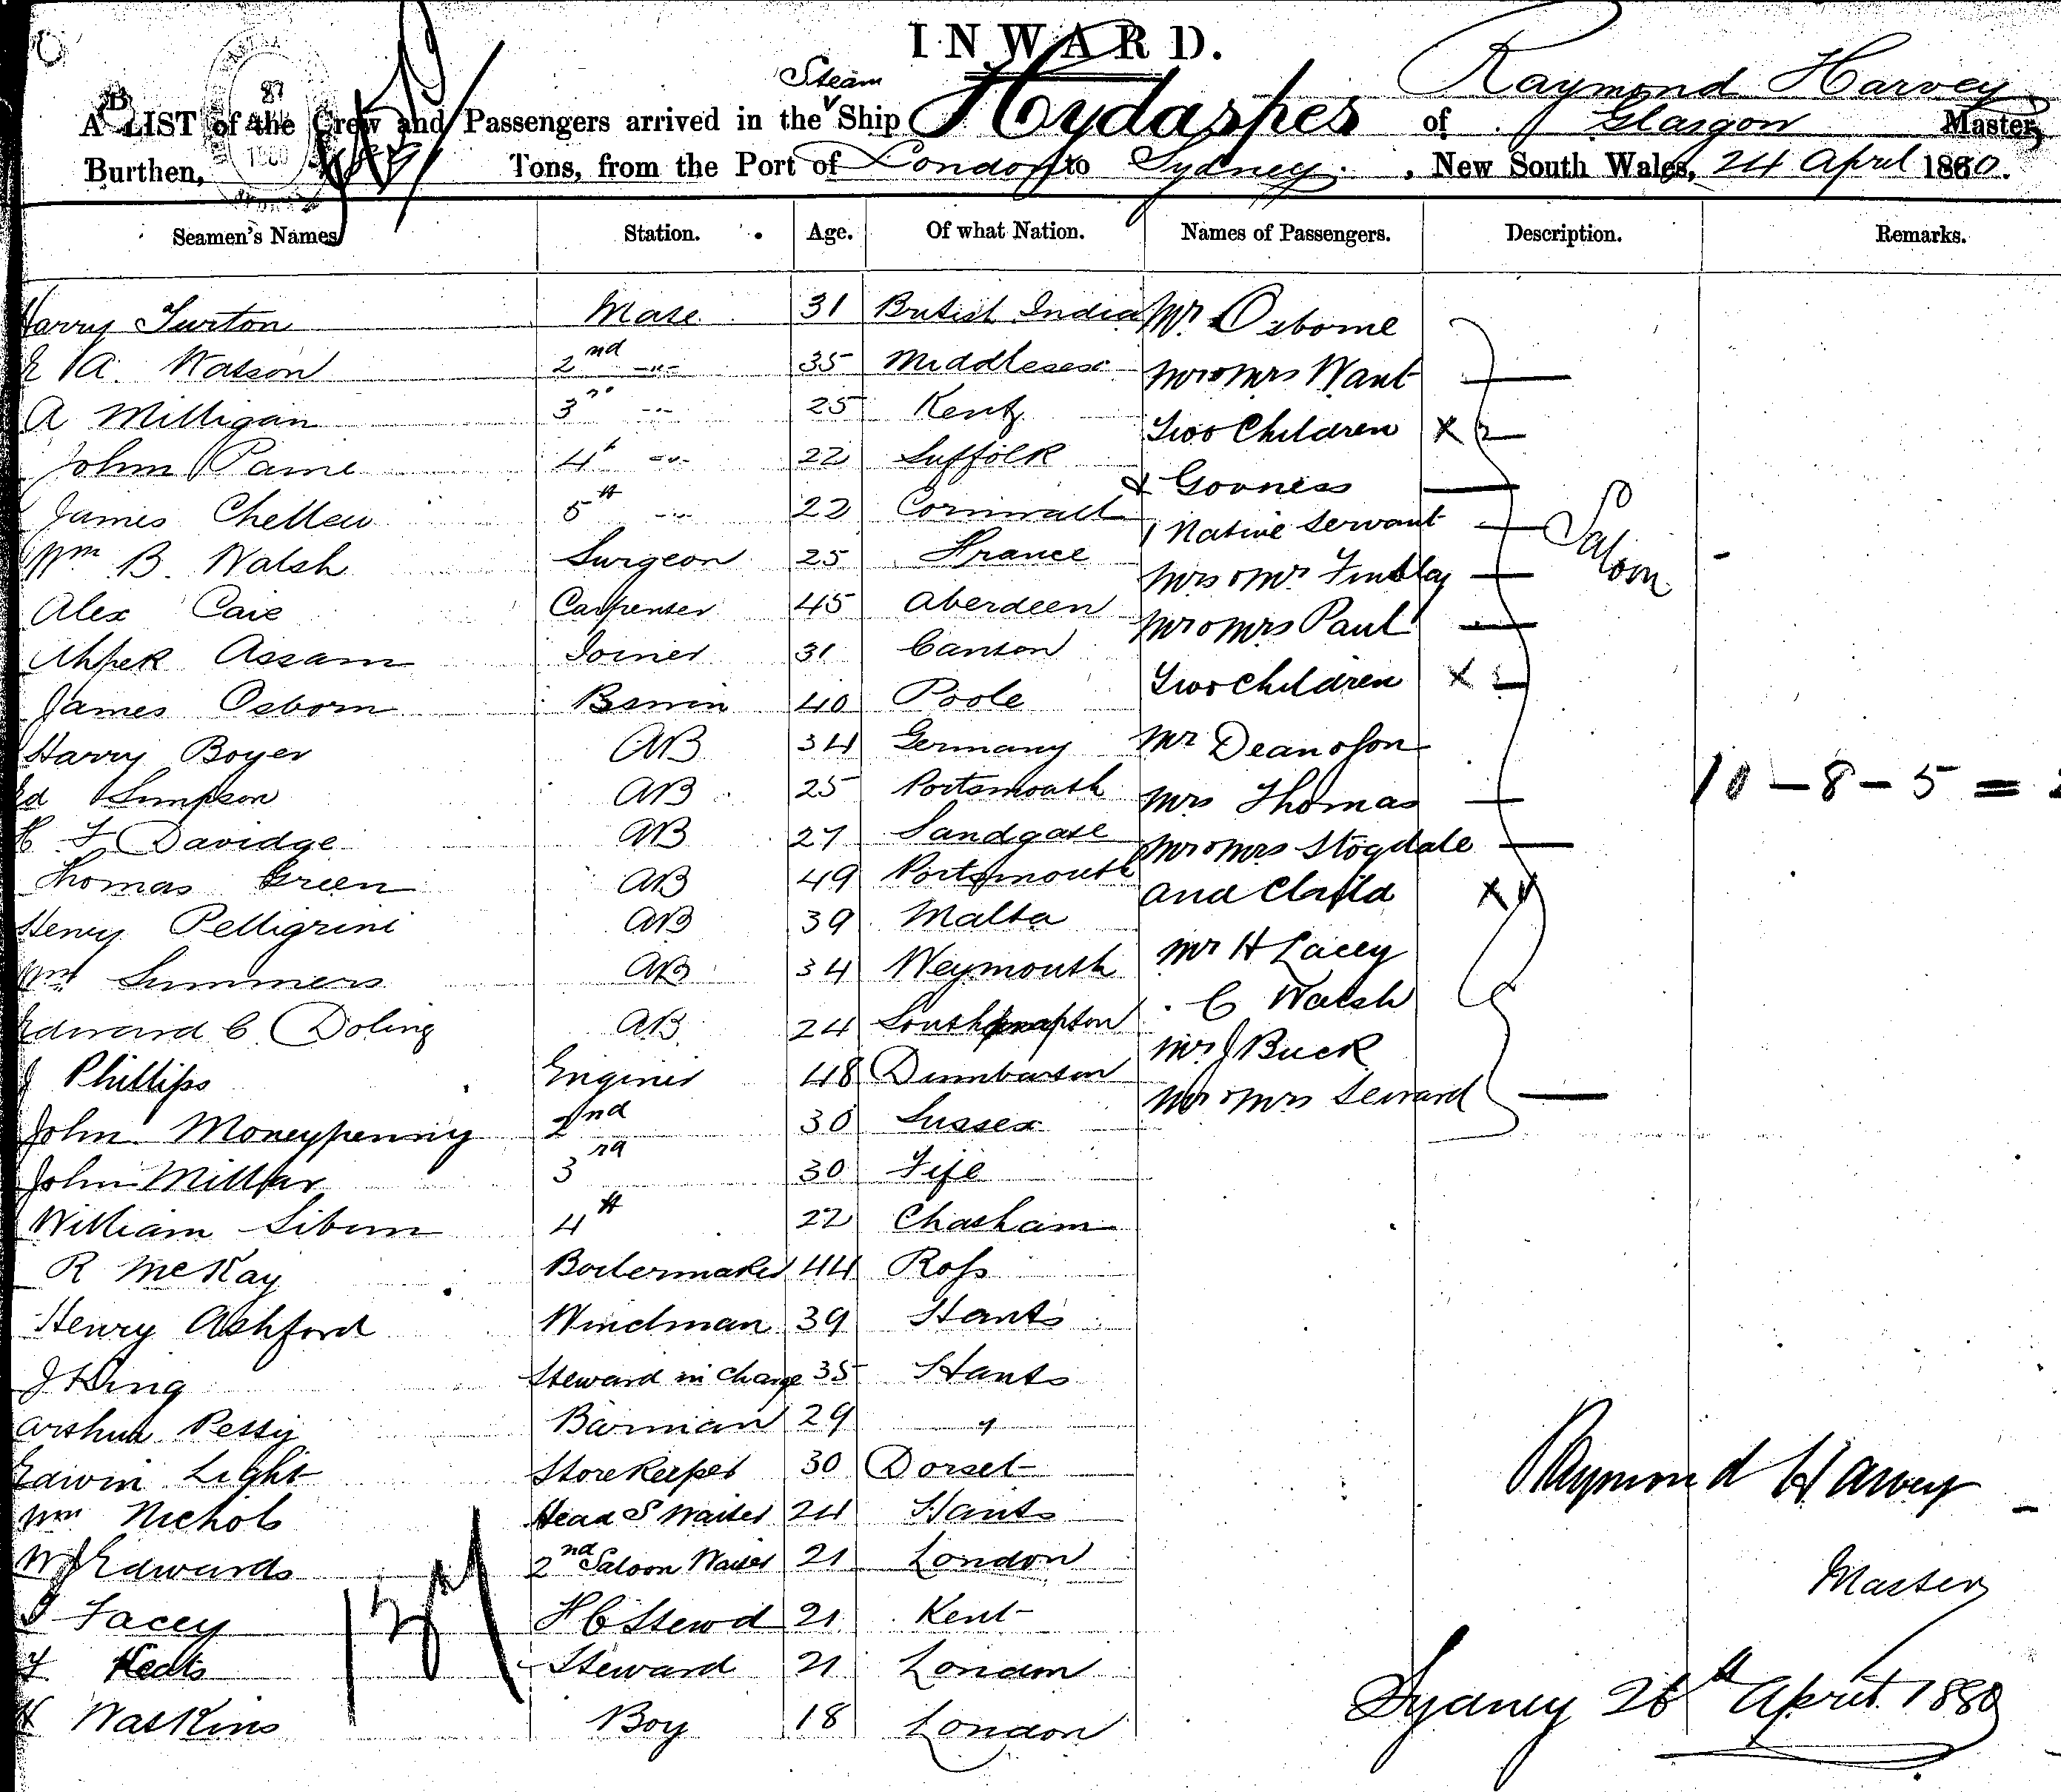 INWARD.
Steam
Raymond Harvey
A LIST of the Crew and Passengers arrived in the Ship Hydaspes of Glasgow Master,
Burthen, Tons, from the Port of London to Sydney, New South Wales, 24 April 1880.
Seamen's Names Station. Age. Of what Nation. Names of Passengers. Description. Remarks.
Harry Turton Mate 31 British India Mr Osborne
E A. Watson 2nd -"- 35 Middlesex Mr & Mrs Want
A Milligan 3rd -"- 25 Kent Two Children X 2
John Paine 4th -"- 22 Suffolk & Govness
James Chellew 5th -"- 22 Cornwall 1 Native Servant Saloon
Wm B. Walsh Surgeon 25 France Mrs & Mr Findlay
Alex Caie Carpenter 45 Aberdeen Mr & Mrs Paul
Ahpek Assam Joiner 31 Canton Two Children X
James Osborn Bswin 40 Poole
Harry Boyer AB 34 Germany Mr Dean & Son
Ed Simpson AB 25 Portsmouth Mrs Thomas 10 - 8 - 5 =
H F Davidge AB 27 Sandgate Mr & Mrs Stogdale
Thomas Green AB 49 Portsmouth and Child X
Henry Pelligrini AB 39 Malta Mr H Lacey
Wm Summers AB 34 Weymouth C Walsh
Edward C Doling AB 24 Southampton Mr J Buck
J Phillips Enginer 48 Dumbarton Mr & Mrs Seward
John Moneypenny 2nd 30 Sussex
John Millar 3rd 30 Fife
William Sibun 4th 22 Chatham
R McKay Boilermaker 44 Ross
Henry Ashford Winchman 39 Hants
J King Steward in Charge 35 Hants
Arthur Petty Barman 29 "
Edwin Light Storekeeper 30 Dorset Raymond Harvey
Wm Nichols Head S Waiter 24 Hants
W J Edwards 2nd Saloon Waiter 21 London Master
Facey H C Stewd 21 Kent
Keats Steward 21 London Sydney 26th April 1880
H Watkins Boy 18 London